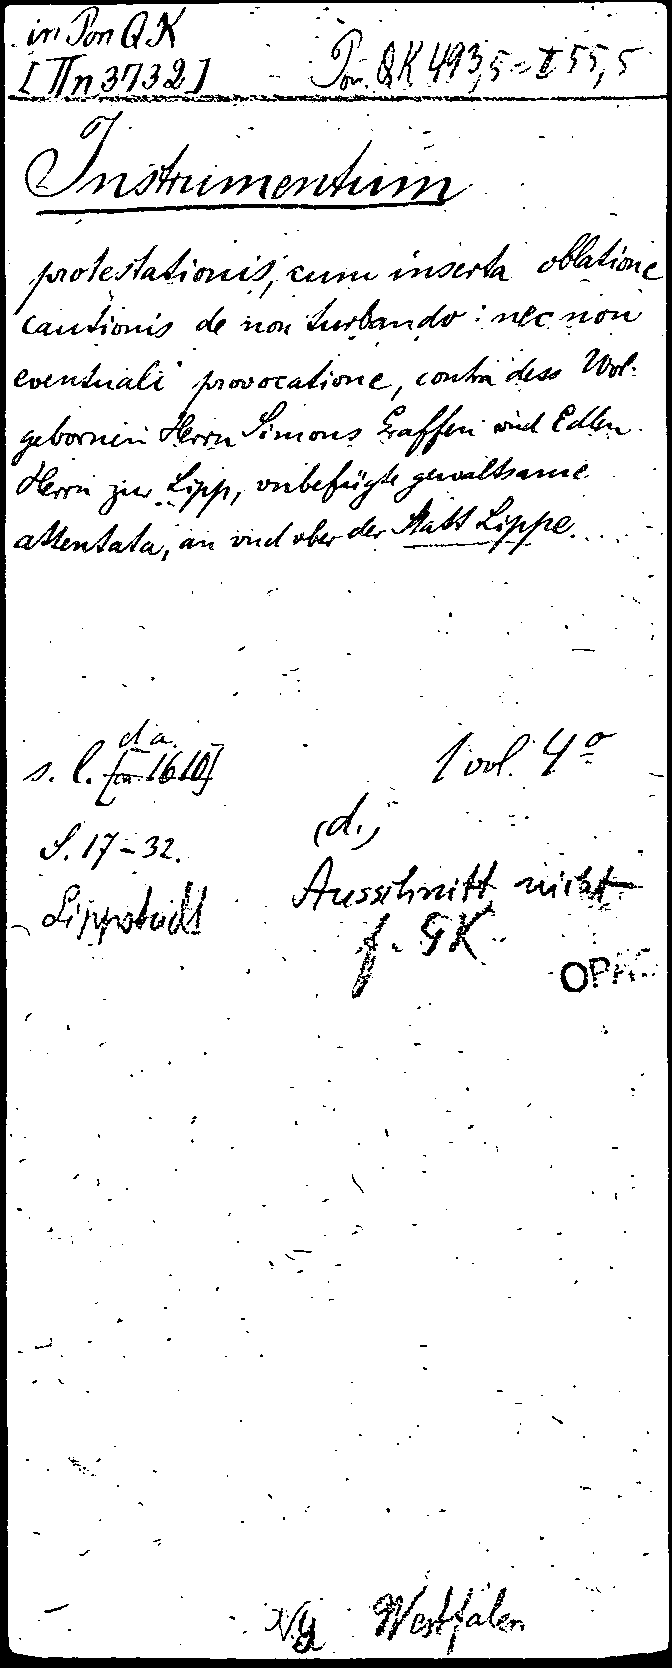 in Pon QK
[IIn 3732] Pon. QK 493,5 = I 55,5
Instrumentum
protestationis, cum inserta oblatione
cautionis de non turbando: nec non
eventuali provocatione, contra dess Wol-
gebornen Herrn Simons Graffen vnd Edlen
Herrn zur Lipp, vnbefügte gewaltsame
attentata, an vnd ober der Statt Lippe....
d a.
s. l. [ca 1610] 1 vol. 4°
S. 17-32. (d.)
Lippstadt Ausschnitt nicht
f. GK
Ng Westfalen